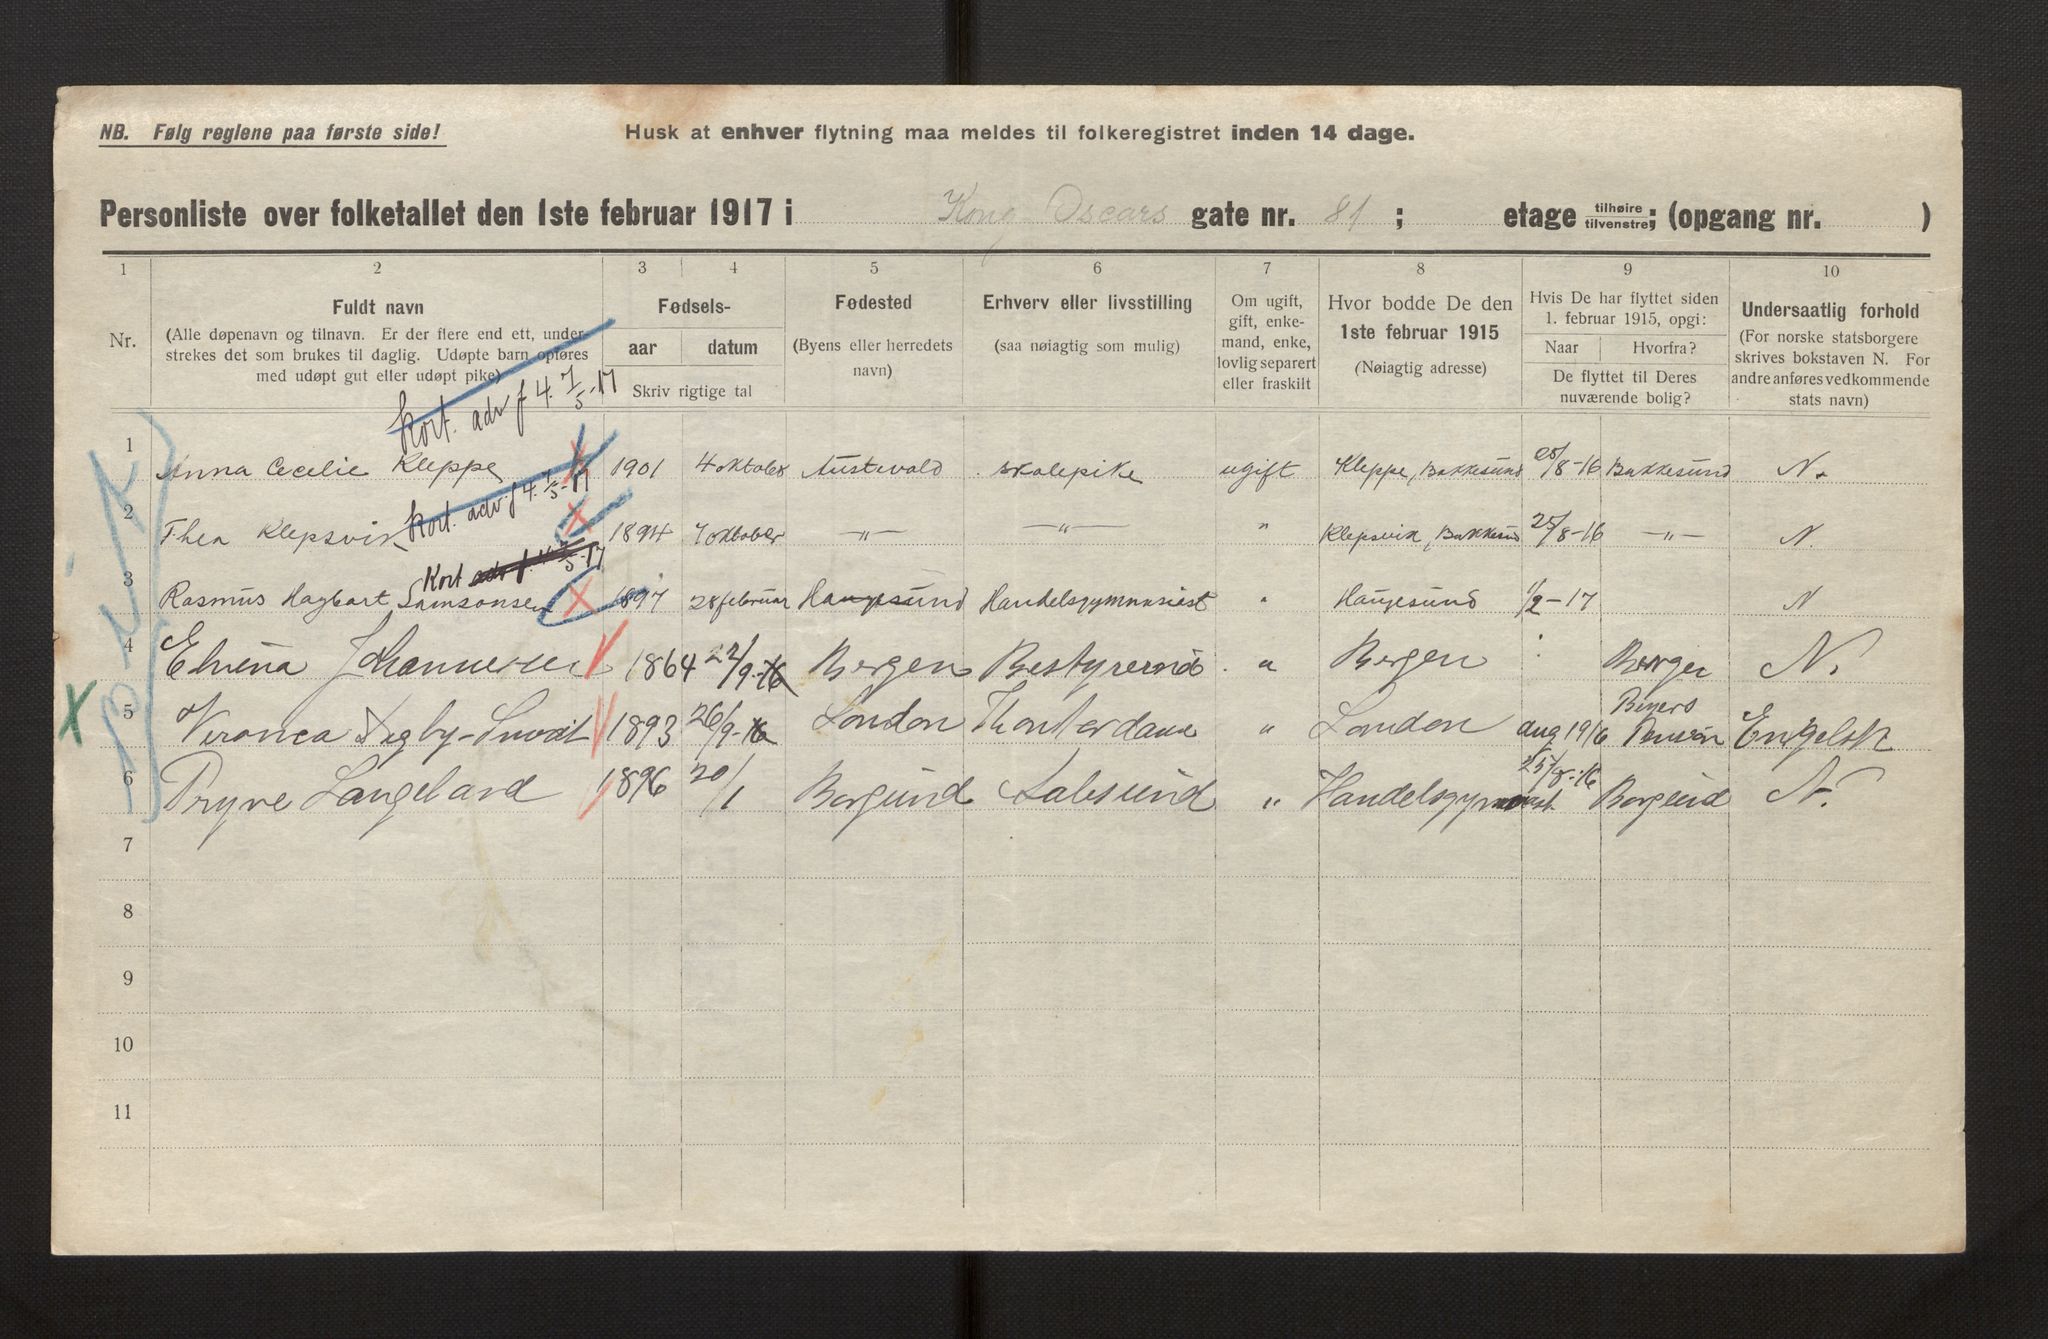 NB. Følg reglene paa første side!
Husk at enhver flytning maa meldes til folkeregistret inden 14 dage.
Personliste over folketallet den 1ste februar 1917 i Kong Oscars gate nr. 81 ; etage tilhøire/tilvenstre; (opgang nr. )
1 2 3 4 5 6 7 8 9 10
Nr.
Fuldt navn
(Alle døpenavn og tilnavn. Er der flere end ett, under-
strekes det som brukes til daglig. Udøpte barn opføres
med udøpt gut eller udøpt pike)
Fødsels-
aar datum
Skriv rigtige tal
Fødested
(Byens eller herredets
navn)
Erhverv eller livsstilling
(saa nøiagtig som mulig)
Om ugift,
gift, enke-
mand, enke,
lovlig separert
eller fraskilt
Hvor bodde De den
1ste februar 1915
(Nøiagtig adresse)
Hvis De har flyttet siden
1. februar 1915, opgi:
Naar Hvorfra?
De flyttet til Deres
nuværende bolig?
Undersaatlig forhold
(For norske statsborgere
skrives bokstaven N. For
andre anføres vedkommende
stats navn)
Kort. adv f 4. 7/5-17
1 Anna Cecelie Kleppe 1901 4 oktober Austevold skolepike ugift Kleppe, Bakkesund 25/8-16 Bakkesund N.
Kort. adv. f 4. 7/5-17
2 Thea Klepsvik 1894 7 oktober —"— —"— " Klepsvik, Bakkesund 25/8-16 —"— N.
Kort adv f. 4. 7/5-17
3 Rasmus Hagbart Samsonsen 1897 28 februar Haugesund Handelsgymnasiast " Haugesund 1/2-17 N
4 Elvina Johannesen 1864 22/9-16 Bergen Bestyrerinde " Bergen Bergen N.
5 Veronica Digby-Smidt 1893 26/9-16 London " London aug 1916 Beyers Pension Engelsk
6 Trygve Langeland 1896 20/1 Borgund Aalesund " Handelsgymnasiast. 25/8-16 Borgund N.
7
8
9
10
11